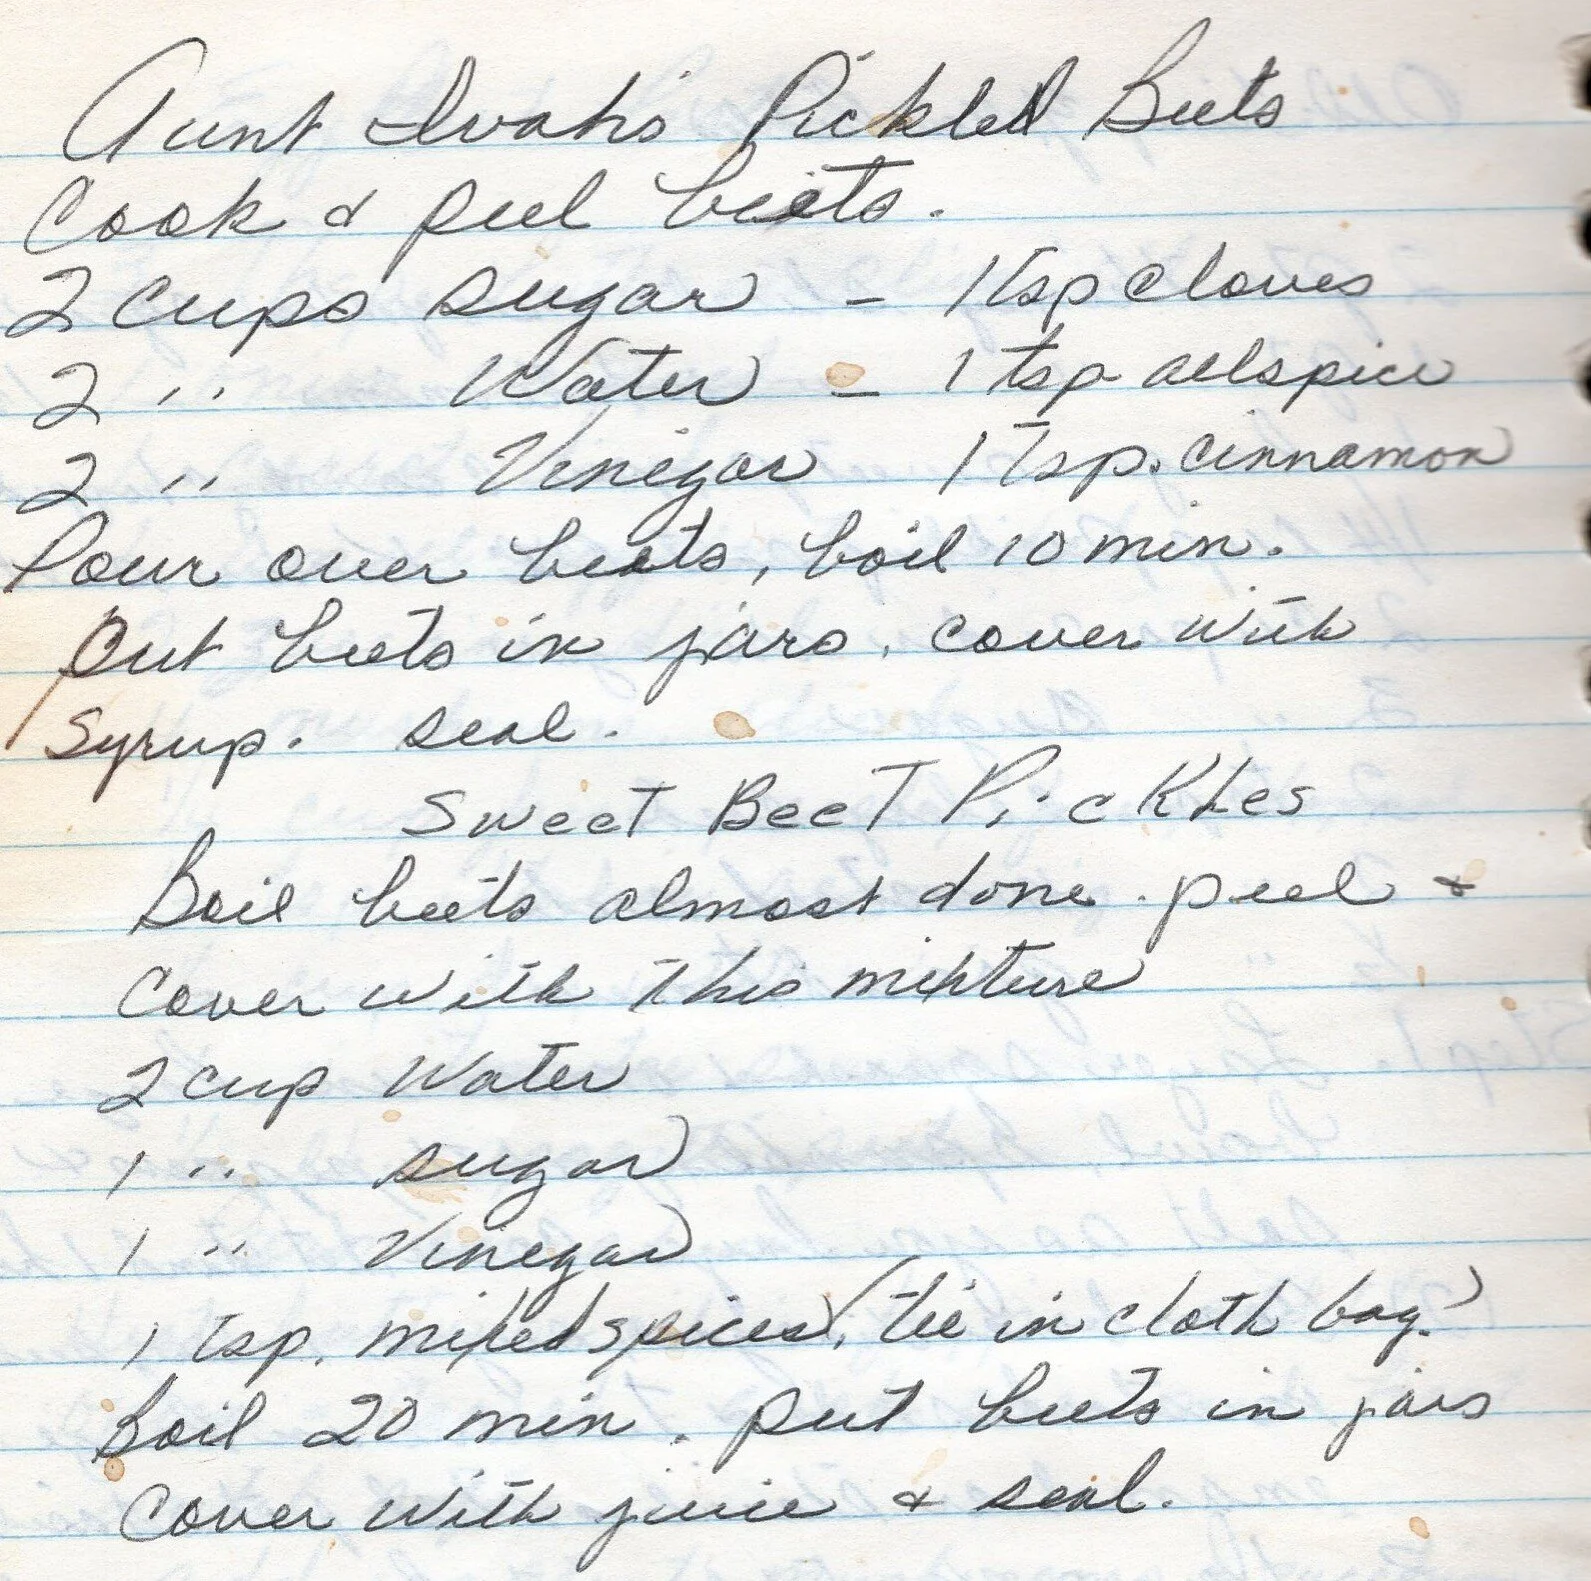 Aunt Ivah's Pickled Beets
Cook & peel beets.
2 cups sugar - 1 tsp cloves
2 " Water - 1 tsp allspice
2 " Vinegar 1 Tsp. cinnamon
Pour over beets, boil 10 min.
Put beets in jars, cover with
syrup. seal.
Sweet Beet Pickles
Boil beets almost done. peel &
cover with this mixture
2 cup water
1 " sugar
1 " Vinegar
1 Tsp. mixed spices, (tie in cloth bag.)
Boil 20 min. put beets in jars
cover with juice & seal.